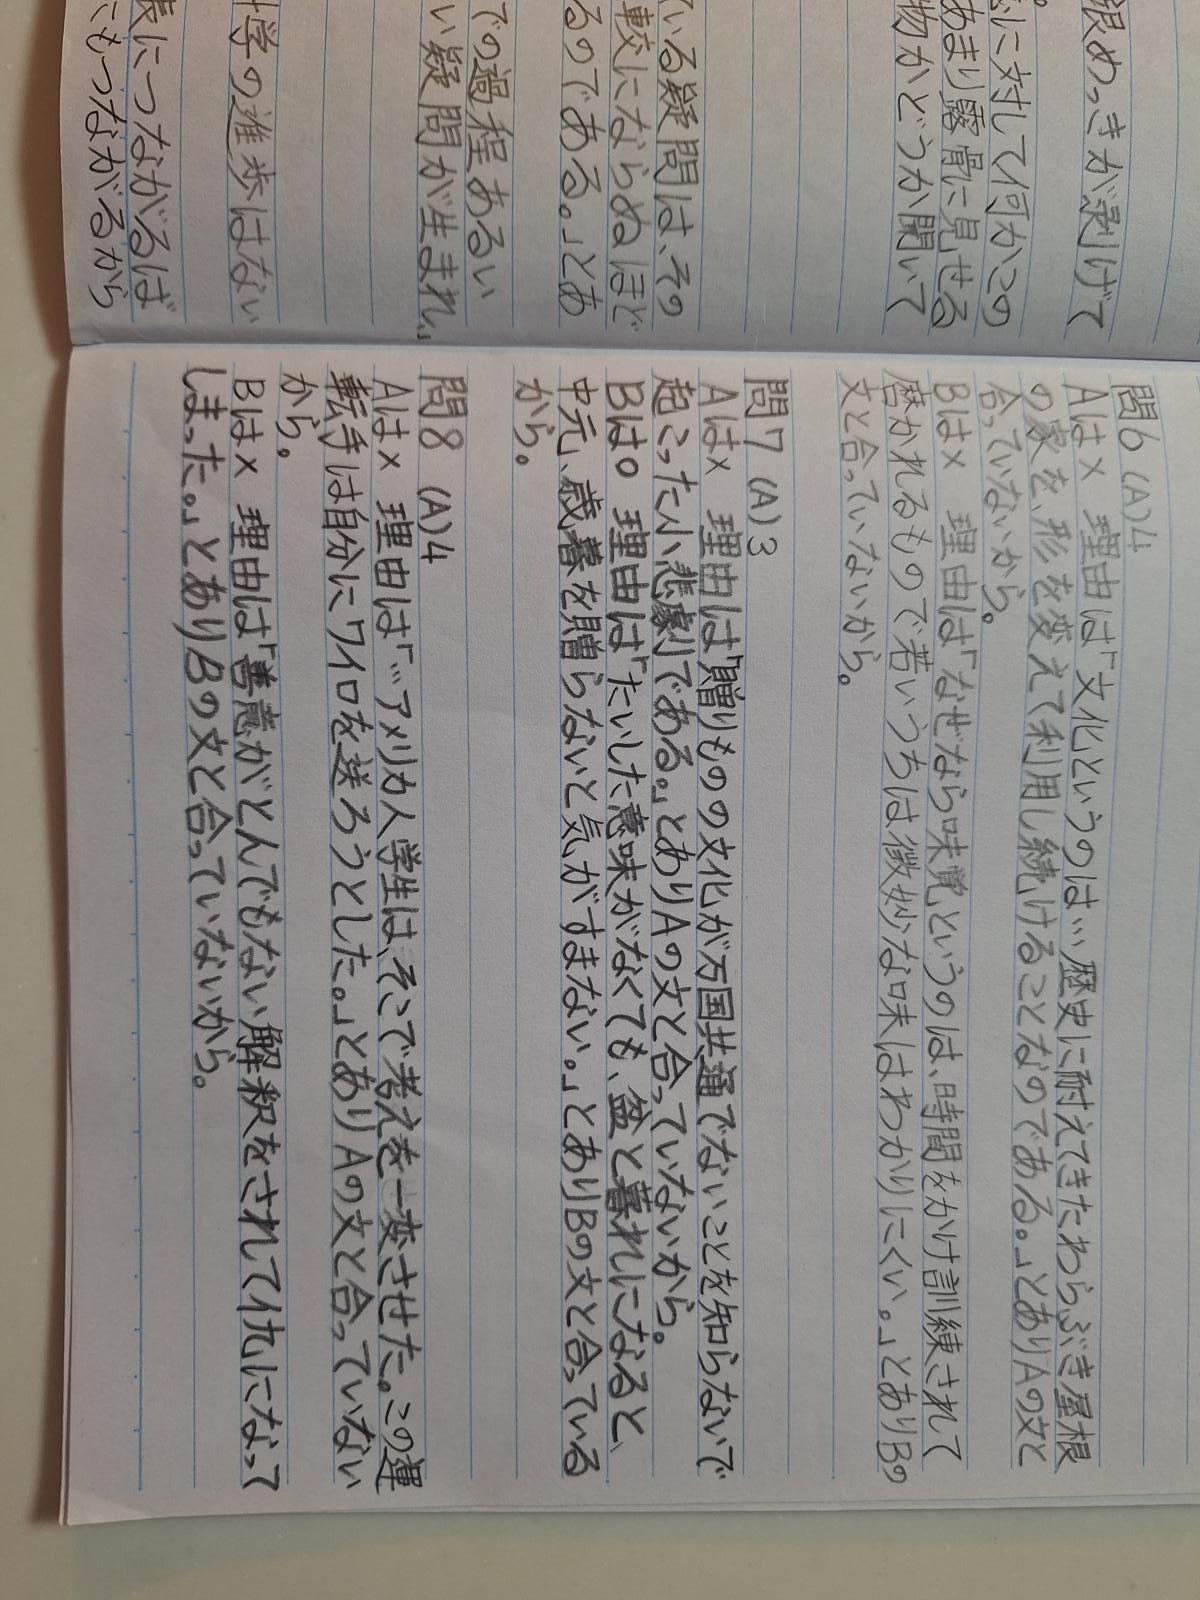 銀めっきが剥げて
に対して何かこの
あまり露骨に見せる
物かどうか聞いて
いる疑問は、その
較にならぬほど
るのである。」とあ
での過程あるい
い疑問が生まれ、
学の進歩はない
表につながるば
にもつながるから
問6 (A)4
Aは× 理由は「文化というのは…歴史に耐えてきたわらぶき屋根
の家を、形を変えて利用し続けることなのである。」とありAの文と
合っていないから。
Bは× 理由は「なぜなら味覚というのは、時間をかけ訓練されて
磨かれるもので若いうちは微妙な味はわかりにくい。」とありBの
文と合っていないから。
問7 (A)3
Aは× 理由は「贈りものの文化が万国共通でないことを知らないで
起こった小悲劇である。」とありAの文と合っていないから。
Bは○ 理由は「たいした意味がなくても、盆と暮れになると、
中元、歳暮を贈らないと気がすまない。」とありBの文と合っている
から。
問8 (A)4
Aは× 理由は「…アメリカ人学生は、そこで考えを一変させた。この運
転手は自分にワイロを送ろうとした。」とありAの文と合っていない
から。
Bは× 理由は「善意がとんでもない解釈をされて仇になって
しまった。」とありBの文と合っていないから。